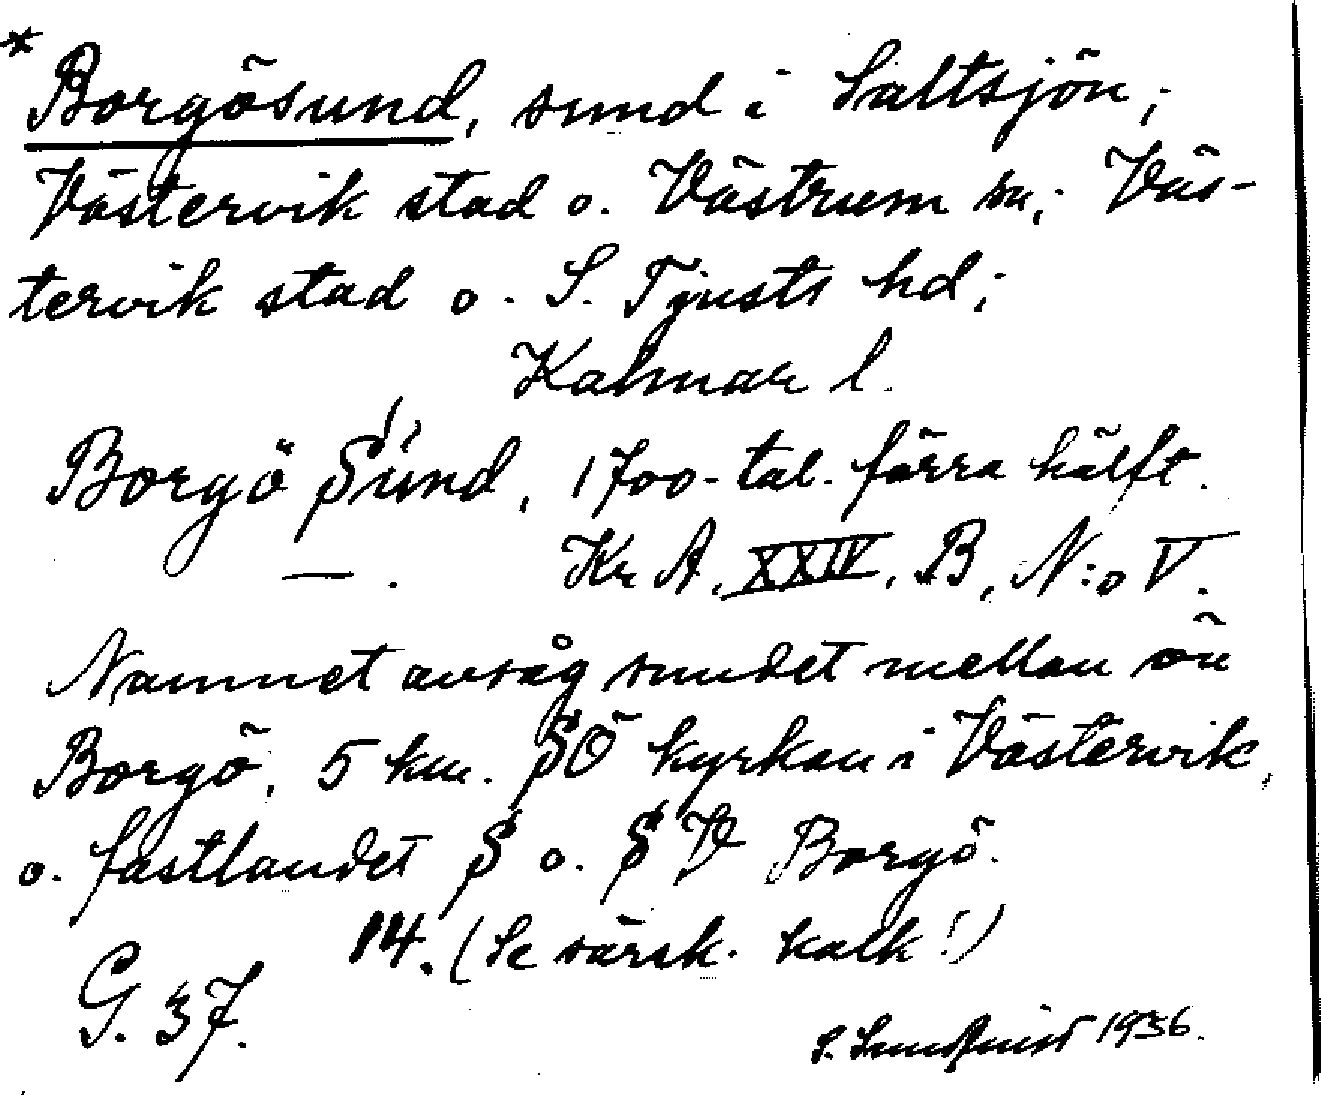 * Borgösund, sund i Saltsjön;
Västervik stad o. Västrum sn; Väs-
tervik stad o. S. Tjusts hd;
Kalmar l.
Borgö Sund, 1700-tal. förra hälft.
— . Kr A. XXIV, B, N:o V.
Namnet avsåg sundet mellan ön
Borgö, 5 km. SÖ kyrkan i Västervik,
o. fastlandet S o. S V Borgö.
14. (Se särsk. kalk!)
G. 37.
S. Sundquist 1936.